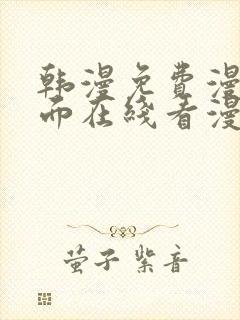 韩漫免费漫
而在线看漫
萤子紫音